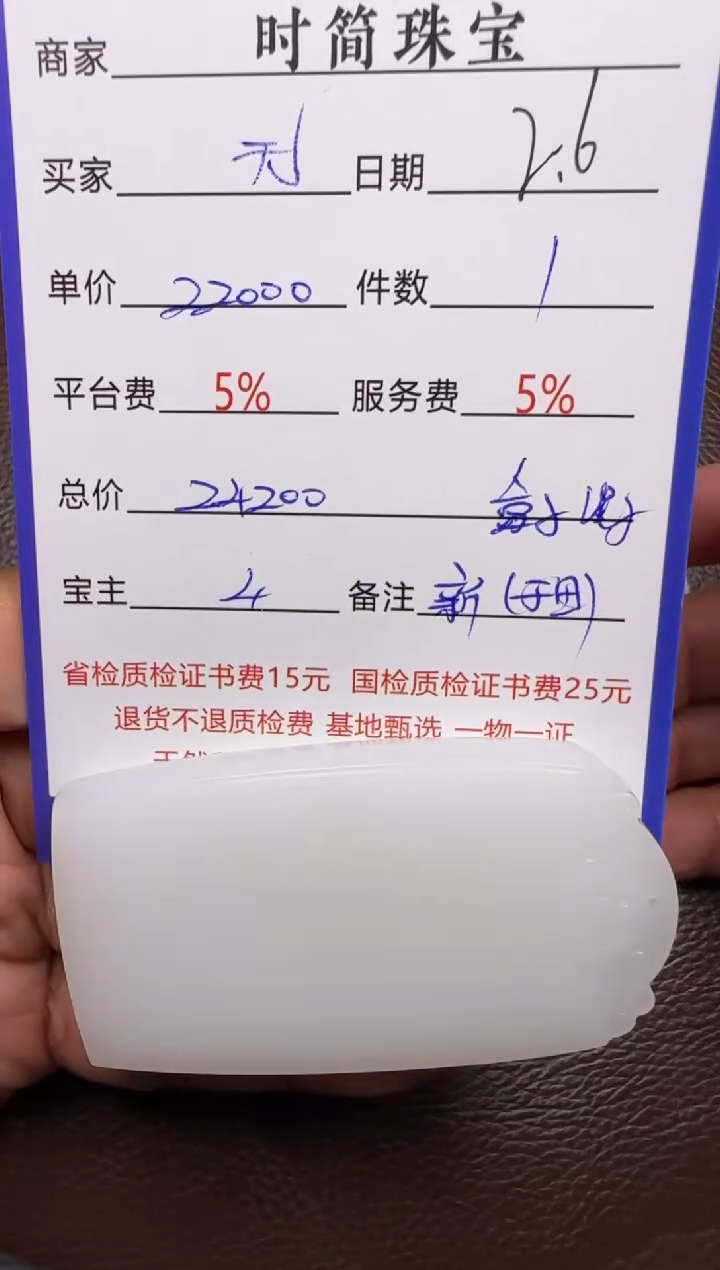 商家 时简珠宝
买家 日期 2.6
单价 22000 件数 1
平台费 5% 服务费 5%
总价 24200
宝主 4 备注 新(于田)
省检质检证书费15元 国检质检证书费25元
退货不退质检费 基地甄选 一物一证
天然